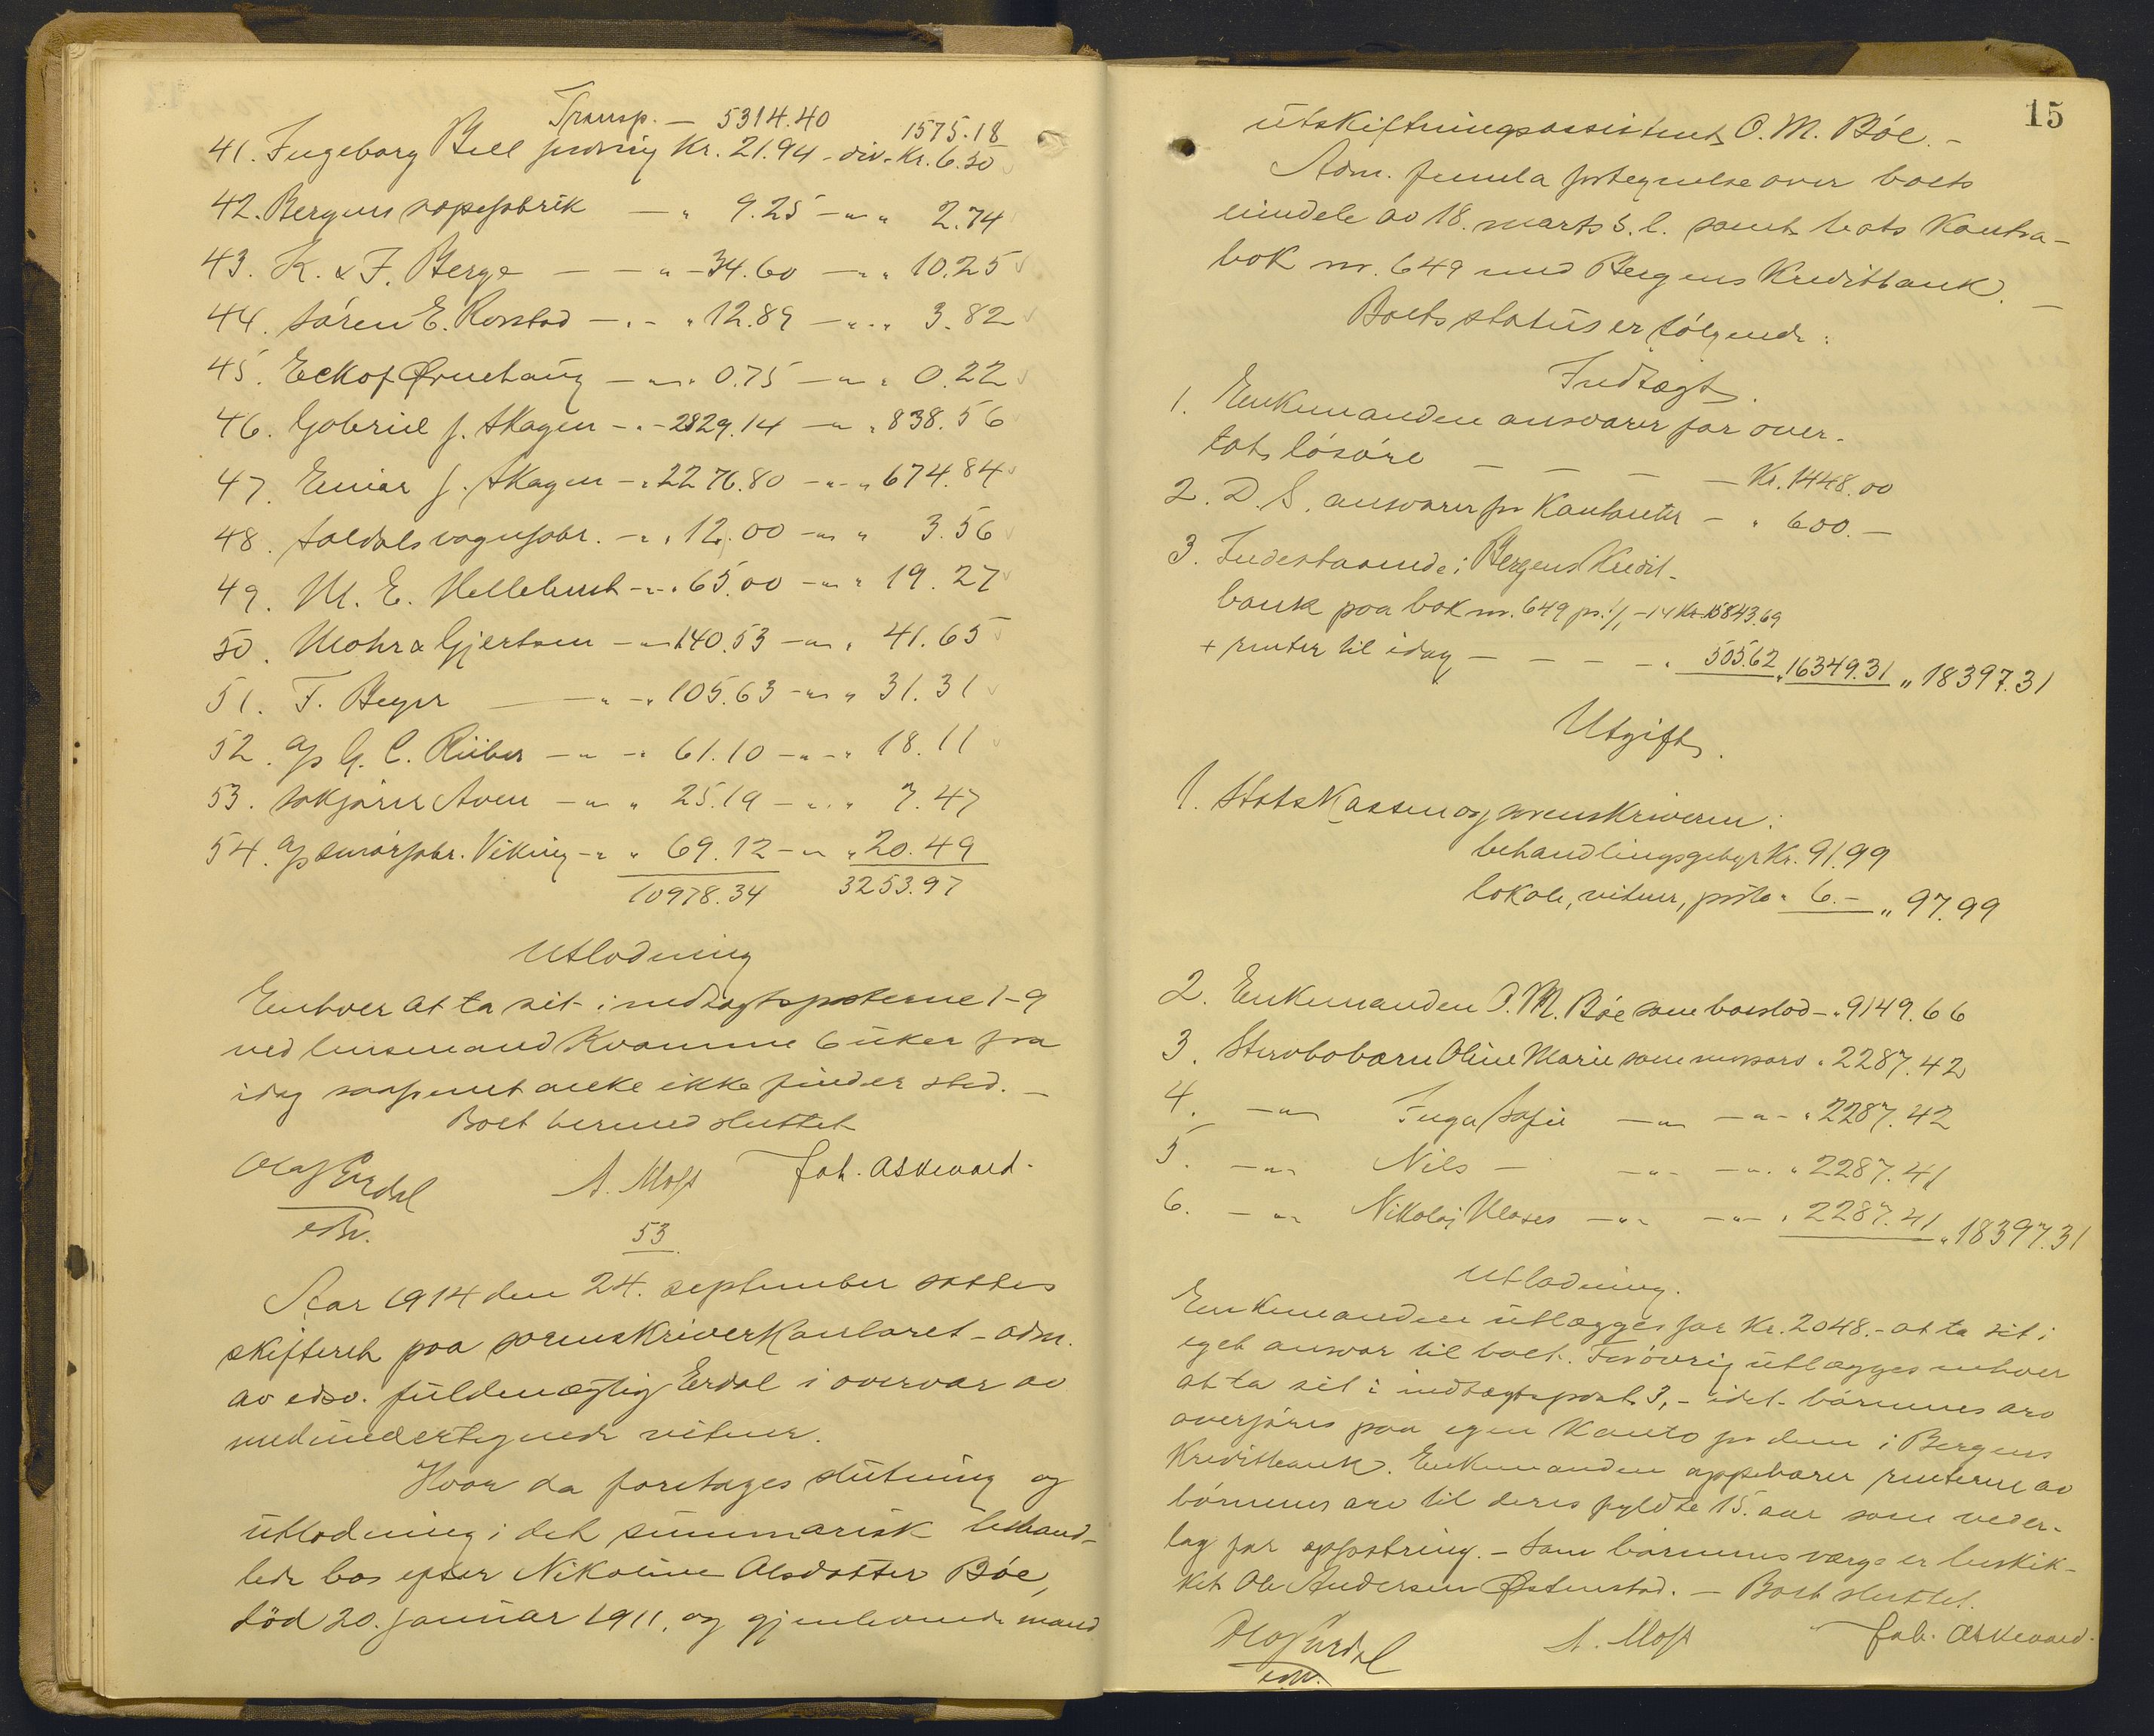 Transp. — 5314.40 1575.18
41. Ingeborg Bell fordring Kr. 21.94 - div. Kr. 6.50
42. Bergens sæpefabrik — " 9.25 — " — " 2.74
43. K. & F. Berge — — " — 34.60 — " 10.25
44. Sören E. Rovstad — " — " 12.89 — " — " 3.82
45. Eckof Ørnehaug — " — " 0.75 — " — " 0.22
46. Gabriel J. Skagen — " — 2829.14 — " — " 838.56
47. Einar J. Skagen — " 2276.80 — " — " 674.84
48. Søldals vognfabr. — " " 12.00 — " — " 3.56
49. M. E. Hellebust — " — " 65.00 — " — " 19.27
50. Mohr & Gjertsen — " — 140.53 — " — " 41.65
51. F. Beyer — " — " 105.63 — " — " 31.31
52. A/s G. C. Rieber — " — " 61.10 — " — " 18.11
53. sakfører Aven — " — " 25.19 — " — " 7.47
54. A/s smørfabr. Viking — " " 69.12 — " — " 20.49
10978.34 3253.97
Utlodning
Enhver at ta sit i indtægtsposterne 1-9
ved lensmand Kvamme 6 uker fra
idag saafremt anke ikke finder sted. —
Boet hermed sluttet
Olaf Erdal A. Moss Joh. Askevold.
edsv.
53
Aar 1914 den 24. september sattes
skifteret paa sorenskriverkontoret - adm.
av edsv. fuldmægtig Erdal i overvær av
medundertegnede vitner.
Hvor da foretages slutning og
utlodning i det summarisk behand-
lede bos efter Nikoline Olsdatter Böe,
död 20. januar 1911, og gjenlevende mand
15
utskiftningsassistent O. M. Böe. -
Adm. fremla fortegnelse over boets
eiendele av 18. marts s. l. samt boets Kontra-
bok nr. 649 med Bergens Kreditbank. —
Boets status er følgende:
Indtægt.
1. Enkemanden ansvarer for over-
tat lösöre — — — — Kr. 1448.00
2. D. S. ansvarer for Kontanter — " 600.—
3. Indestaaende i Bergens Kredit-
bank paa bok nr. 649 pr. 1/1 - 14 Kr. 15843.69
+ renter til idag — — — — " 505.62 " 16349.31 " 18397.31
Utgift.
1. Statskassen og sorenskriveren:
behandlingsgebyr Kr. 91.99
lokale, vitner, porto " 6.— " 97.99
2. Enkemanden O. M. Böe som boslod — " 9149.66
3. Stervbobarn Oline Marie som morsarv " 2287.42
4. — " — Inga Sofie — " — — " — " 2287.42
5. — " — Nils — — " — — " — " 2287.41
6. — " — Nikolai Klases — " — — " — " 2287.41 " 18397.31
Utlodning.
Enkemanden utlægges for Kr. 2048.- at ta sit i
eget ansvar til boet. Forövrig utlægges enhver
at ta sit i indtægtspost 3, - idet börnenes arv
overföres paa egen Konto for dem i Bergens
Kreditbank. Enkemanden oppebærer renterne av
börnenes arv til deres fyldte 15. aar som veder-
lag for opfostring. - Som börnenes værge er beskik-
ket Ole Andersen Østenstad. — Boet sluttet.
Olaf Erdal A. Moss Joh. Askevold.
edsv.